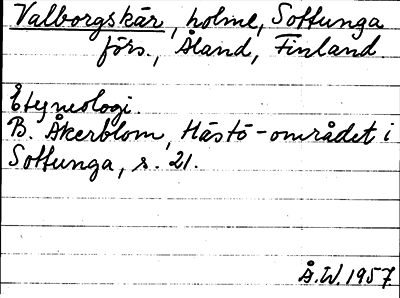 Valborgskär, holme, Sottunga
förs., Åland, Finland.
Etymologi.
B. Åkerblom, Hästö-området i
Sottunga, s. 21.
Å.W. 1957